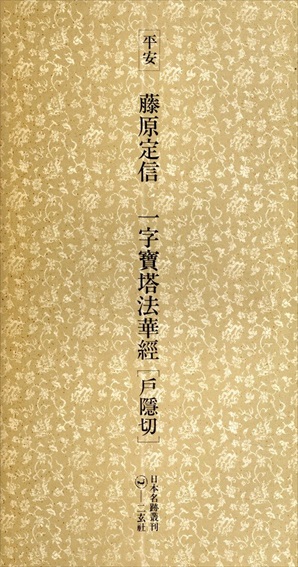 [平安]
藤原定信 一字寶塔法華經[戶隱切]
日本名跡叢刊
二玄社